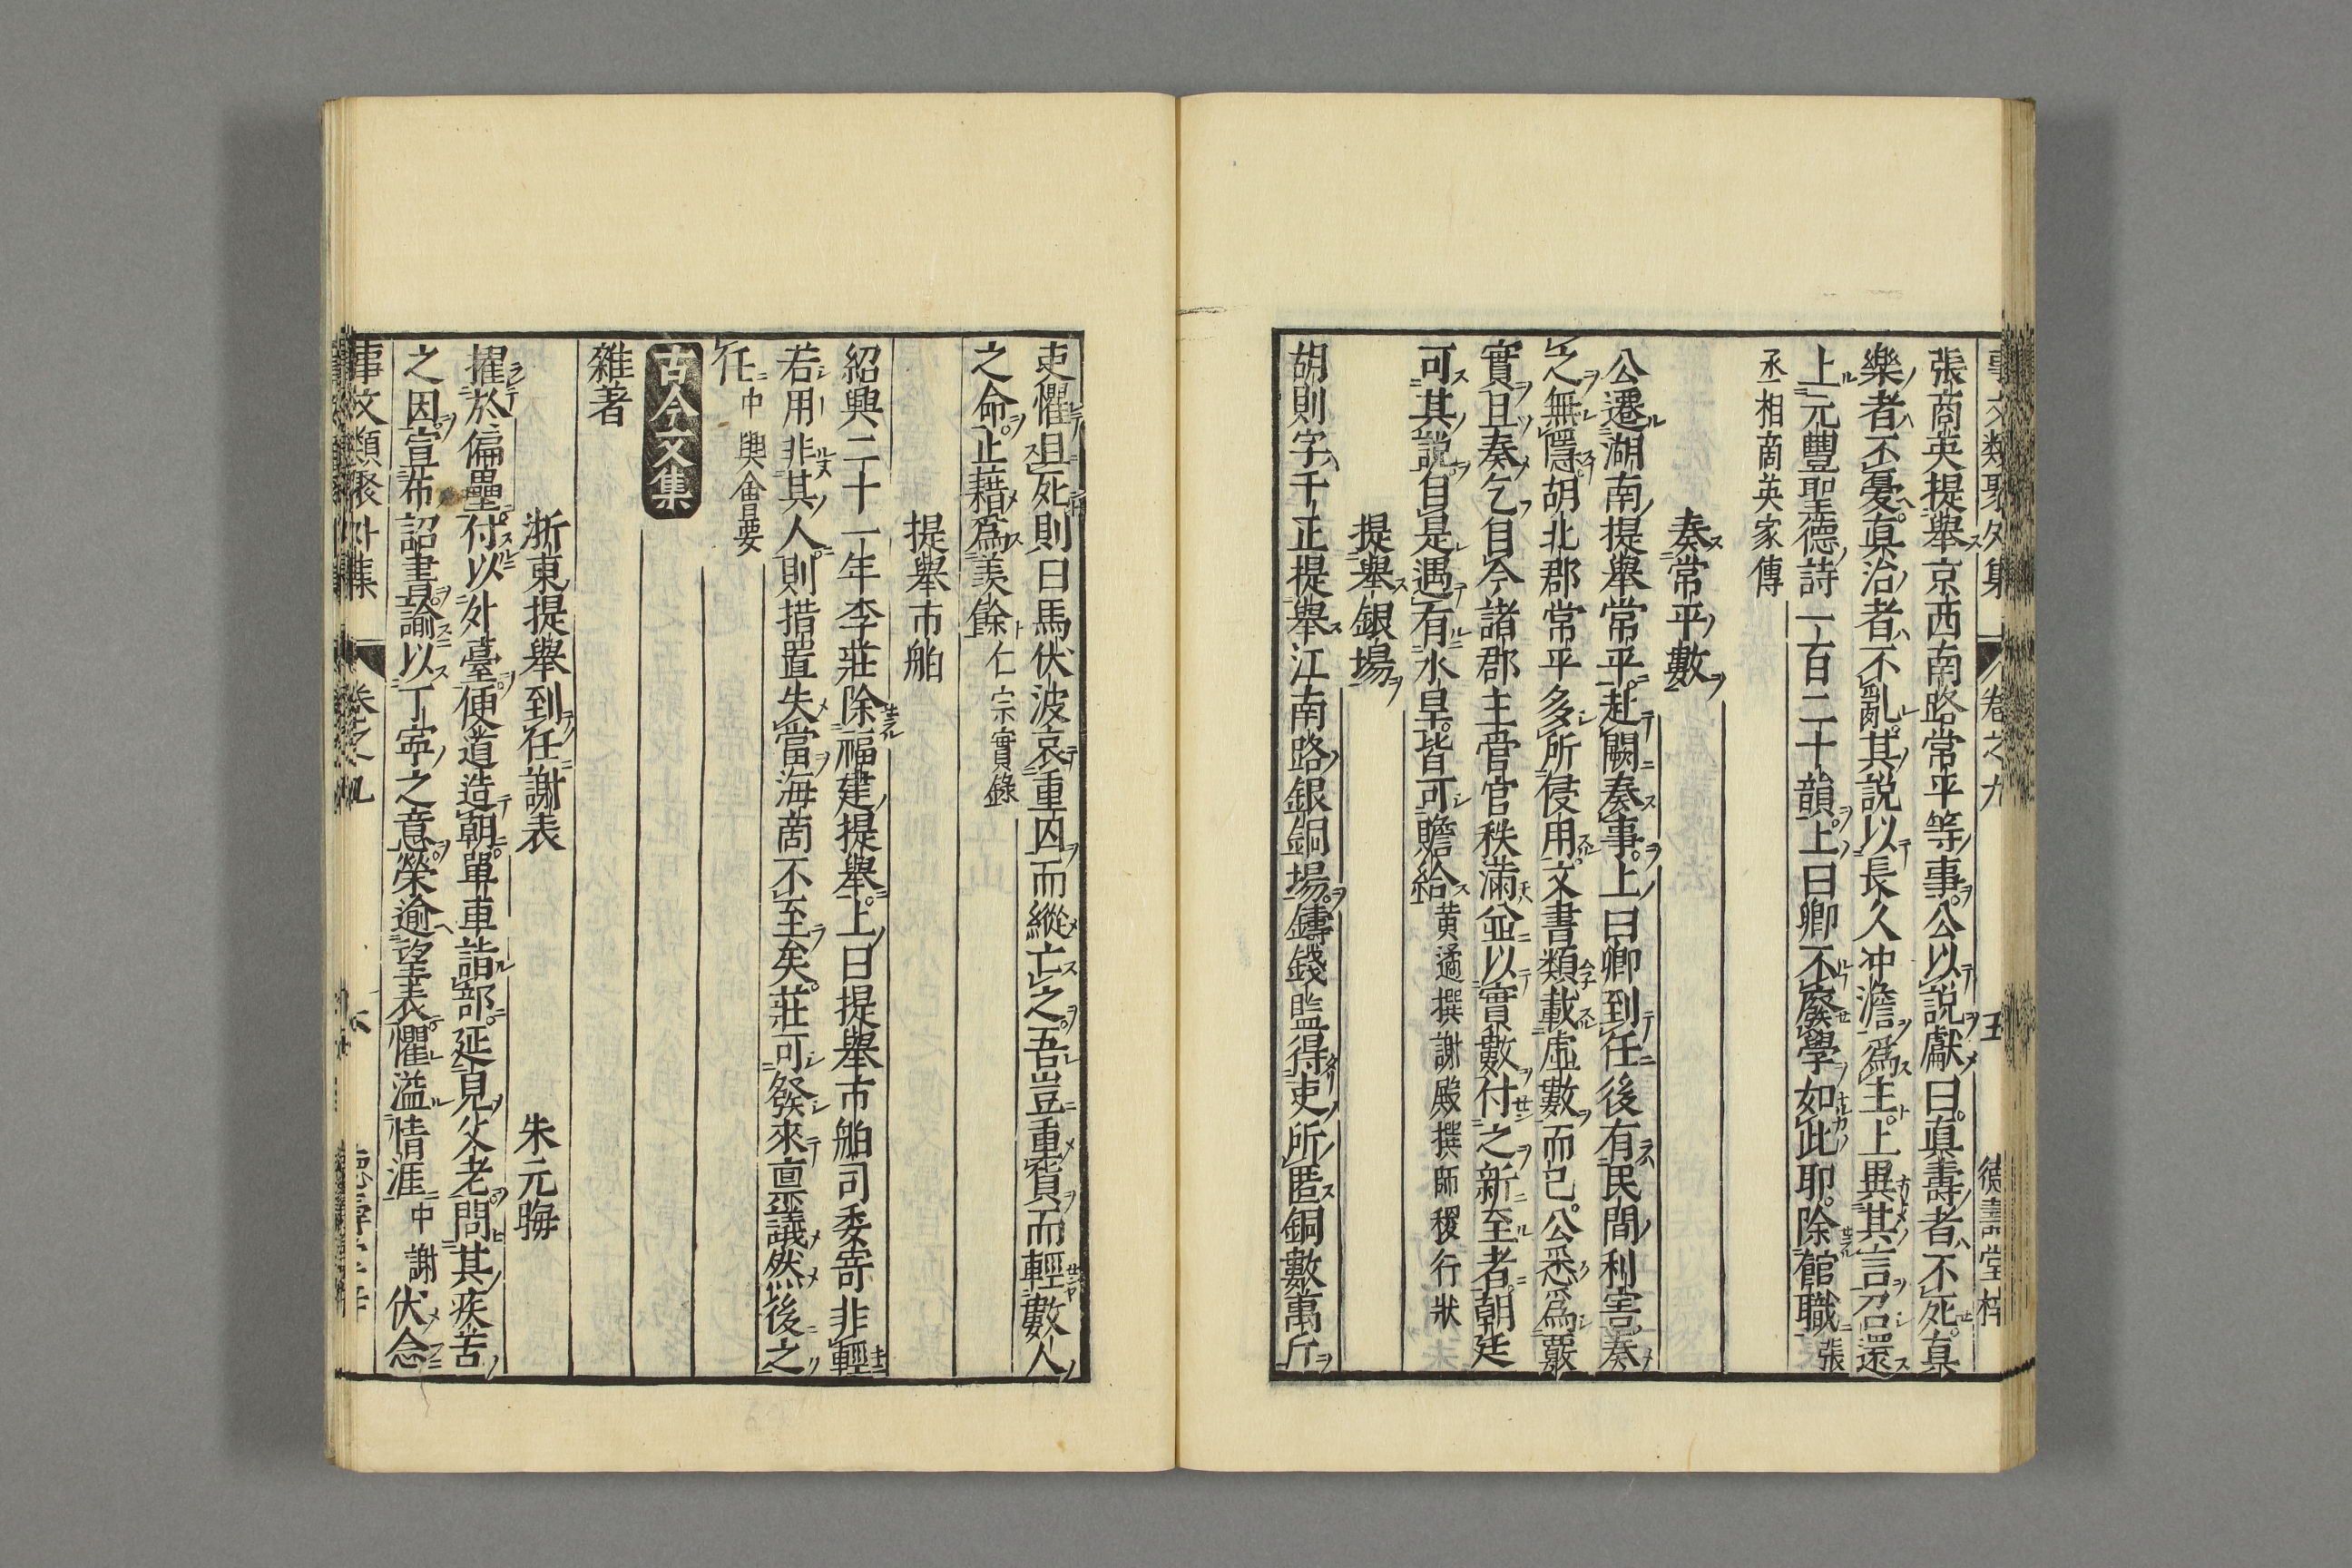 事文類聚外集 卷之九 五 德壽堂梓
張商英提舉京西南路常平等事公以説獻曰真壽者不死真
樂者不憂真治者不亂其説以長久冲澹爲主上異其言召還
上元豐聖德詩一百二十韻上曰卿不廢學如此耶除館職張
丞相商英家傳
奏常平數
公遷湖南提舉常平赴闕奏事上曰卿到任後有民間利害奏
之無隱胡北郡常平多所侵用文書類載虛數而已公悉爲覈
實且奏乞自今諸郡主管官秩滿並以實數付之新至者朝廷
可其説自是遇有水旱皆可贍給黄遹撰謝殿撰師稷行狀
提舉銀場
胡則字子正提舉江南路銀銅場鑄錢監得吏所匿銅數萬斤
吏懼且死則曰馬伏波哀重囚而縱亡之吾豈重貨而輕數人
之命止藉爲羨餘仁宗實錄
提舉市舶
紹興二十一年李莊除福建提舉上曰提舉市舶司委寄非輕
若用非其人則措置失當海商不至矣莊可發來稟議然後之
任中興會要
古今文集
雜著
浙東提舉到任謝表 朱元晦
擢於偏壘付以外臺便道造朝單車詣部延見父老問其疾苦
之因宣布詔書諭以丁寧之意榮逾望表懼溢情涯中謝伏念
事文類聚外集 卷之九 六 德壽堂梓